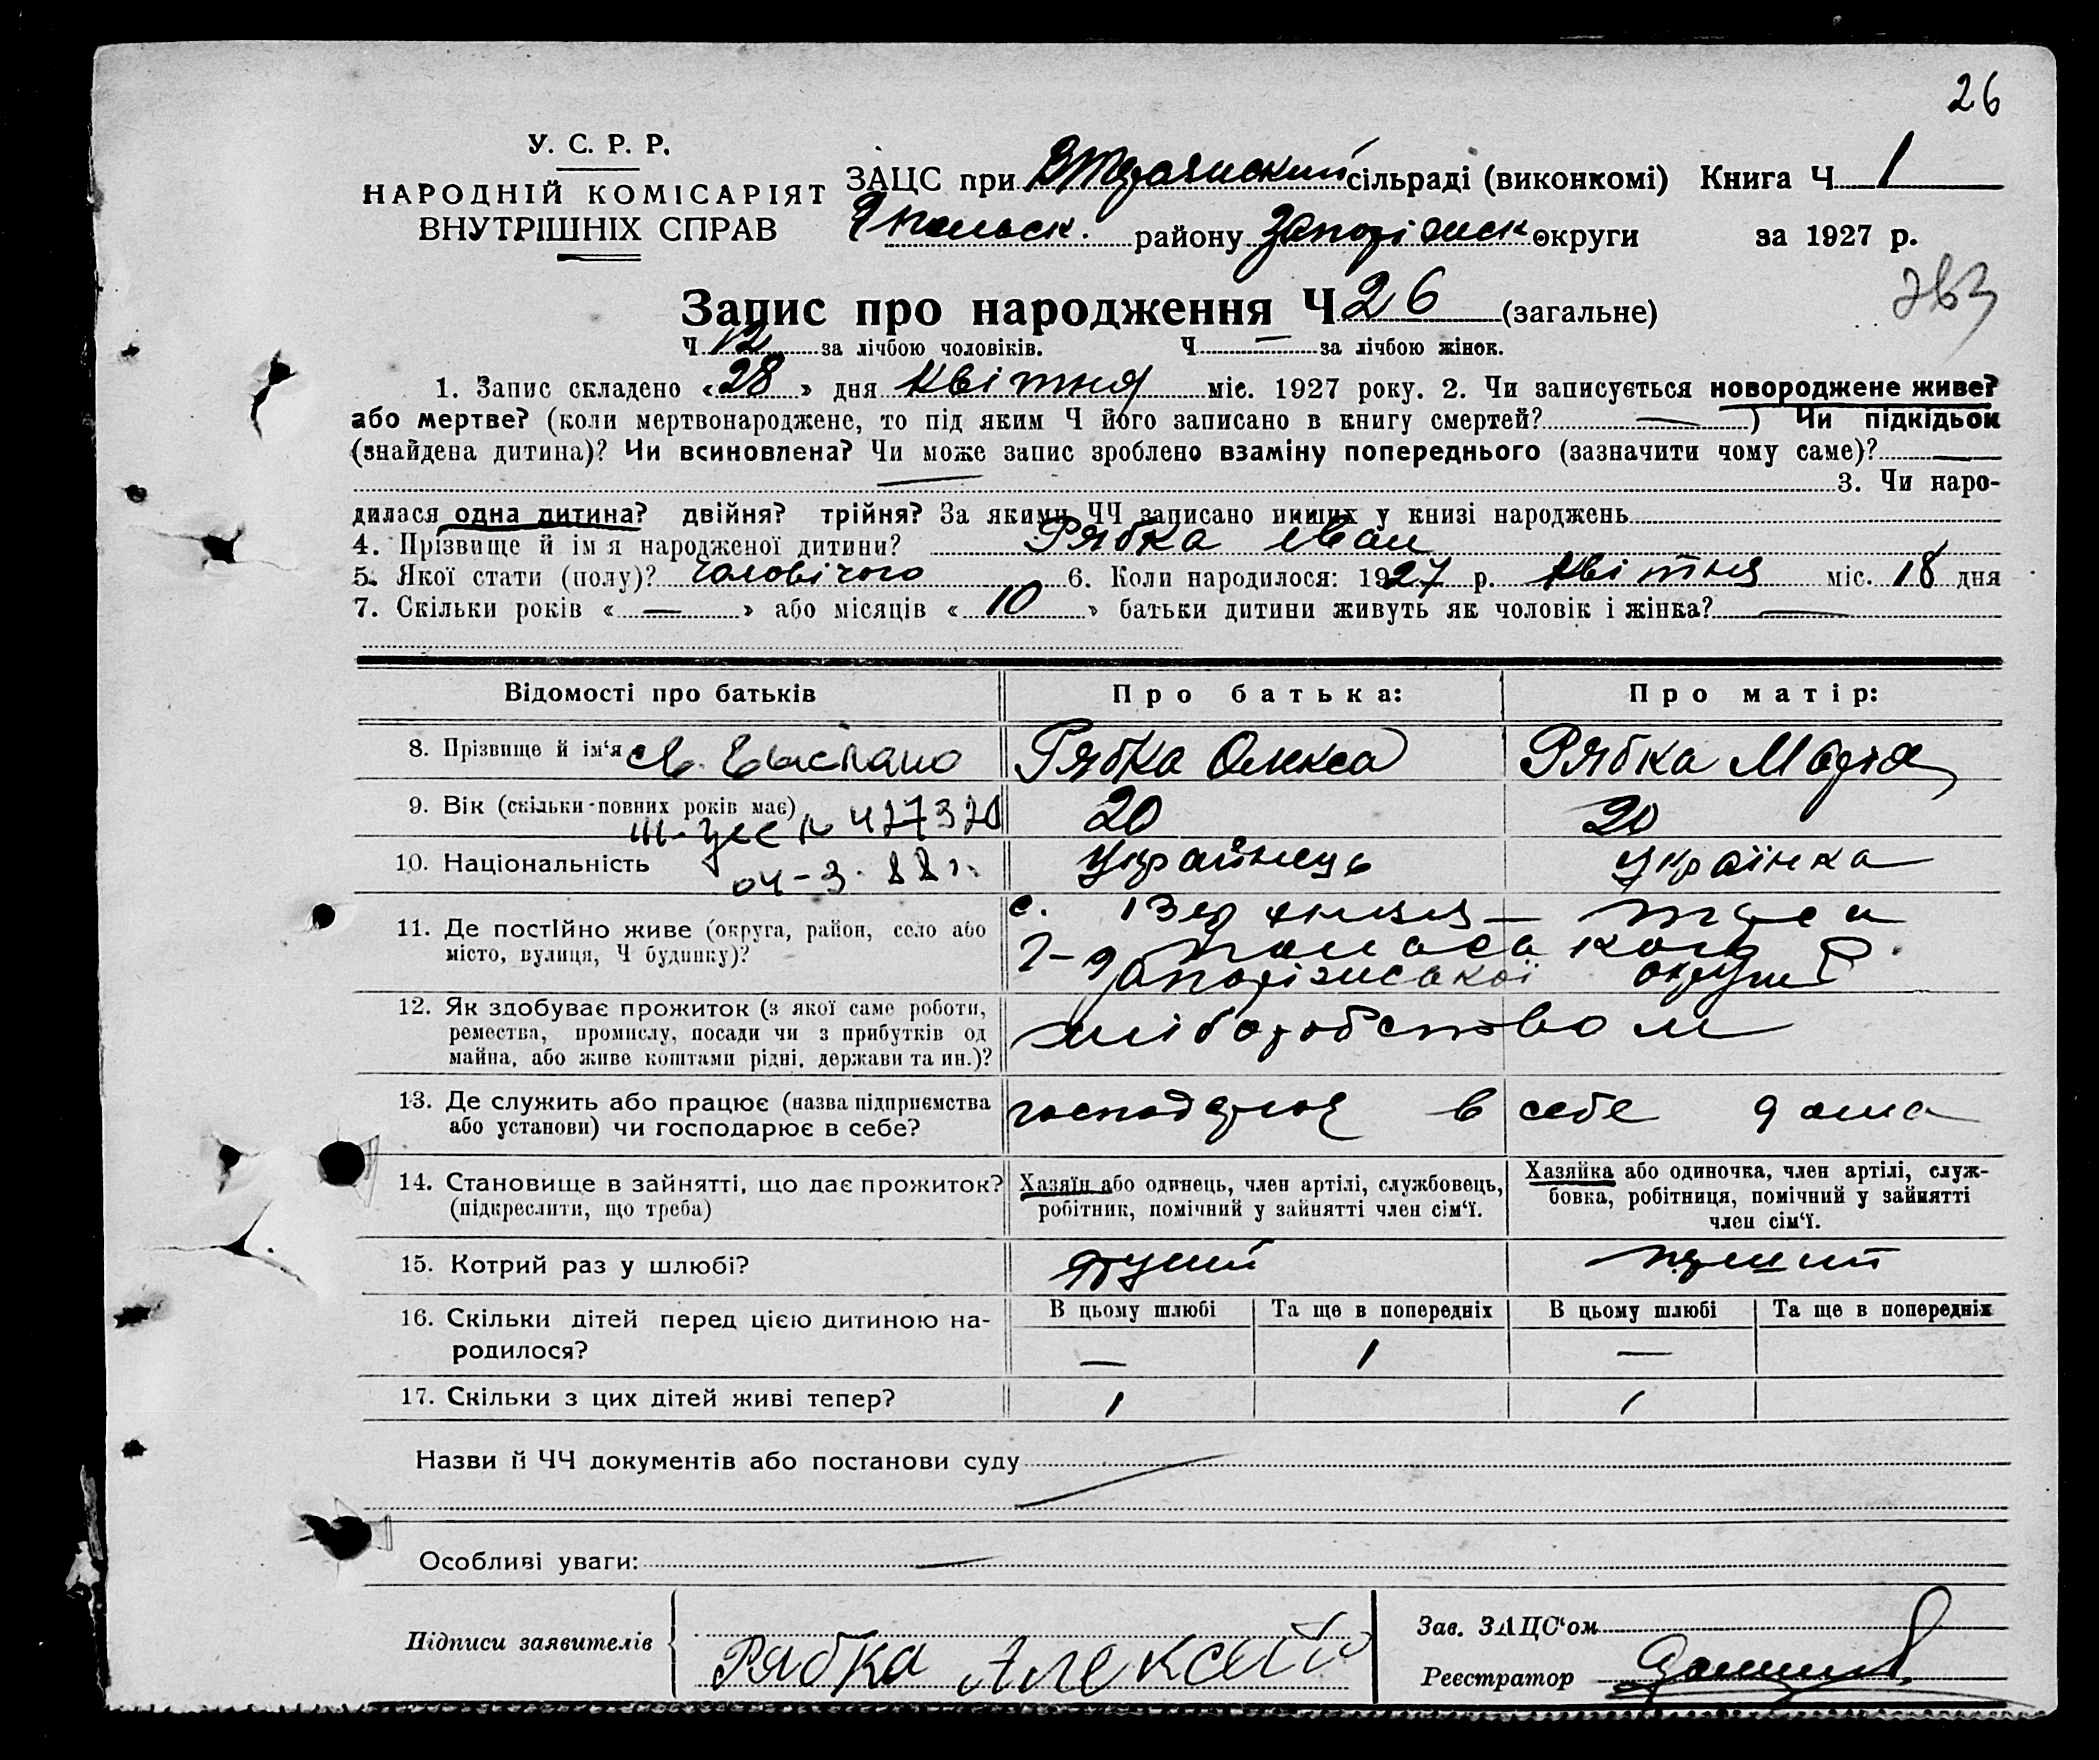 26
У. С. Р. Р.
НАРОДНІЙ КОМІСАРІЯТ
ВНУТРІШНІХ СПРАВ
ЗАЦС при сільраді (виконкомі) Книга Ч 1
району Запоріжськ округи за 1927 р.
Запис про народження Ч 26 (загальне)
Ч 12 за лічбою чоловіків. Ч — за лічбою жінок.
1. Запис складено «28» дня квітня міс. 1927 року. 2. Чи записується новороджене живе?
або мертве? (коли мертвонароджене, то під яким Ч його записано в книгу смертей? —) Чи підкідьок
(знайдена дитина)? Чи всиновлена? Чи може запис зроблено взаміну попереднього (зазначити чому саме)? —
— 3. Чи наро-
дилася одна дитина? двійня? трійня? За якими ЧЧ записано инших у книзі народжень
4. Прізвище й ім я народженої дитини? Рябка Іван
5. Якої стати (полу)? чоловічого 6. Коли народилося: 1927 р. квітня міс. 18 дня
7. Скільки років «—» або місяців «10» батьки дитини живуть як чоловік і жінка? —
Відомості про батьків Про батька: Про матір:
8. Прізвище й ім'я Рябка Олекса Рябка Марія
9. Вік (скільки-повних років має) 20 20
10. Національність 04-3. 88 г. Українець українка
11. Де постійно живе (округа, район, село або
місто, вулиця, Ч будинку)?
Запоріжської округи
12. Як здобуває прожиток (з якої саме роботи,
ремества, промислу, посади чи з прибутків од
майна, або живе коштами рідні, держави та ин.)?
хліборобством
13. Де служить або працює (назва підприємства
або установи) чи господарює в себе?
господарює в себе дома
14. Становище в зайнятті, що дає прожиток?
(підкреслити, що треба)
Хазяїн або одинець, член артілі, службовець,
робітник, помічний у зайнятті член сім'ї.
Хазяйка або одиночка, член артілі, служ-
бовка, робітниця, помічний у зайнятті
член сім'ї.
15. Котрий раз у шлюбі? другий
16. Скільки дітей перед цією дитиною на-
родилося?
В цьому шлюбі Та ще в попередніх В цьому шлюбі Та ще в попередніх
— 1 —
17. Скільки з цих дітей живі тепер? 1 1
Назви й ЧЧ документів або постанови суду
Особливі уваги: —
Підписи заявителів Рябка Алексей
Зав. ЗАЦС'ом
Реєстратор